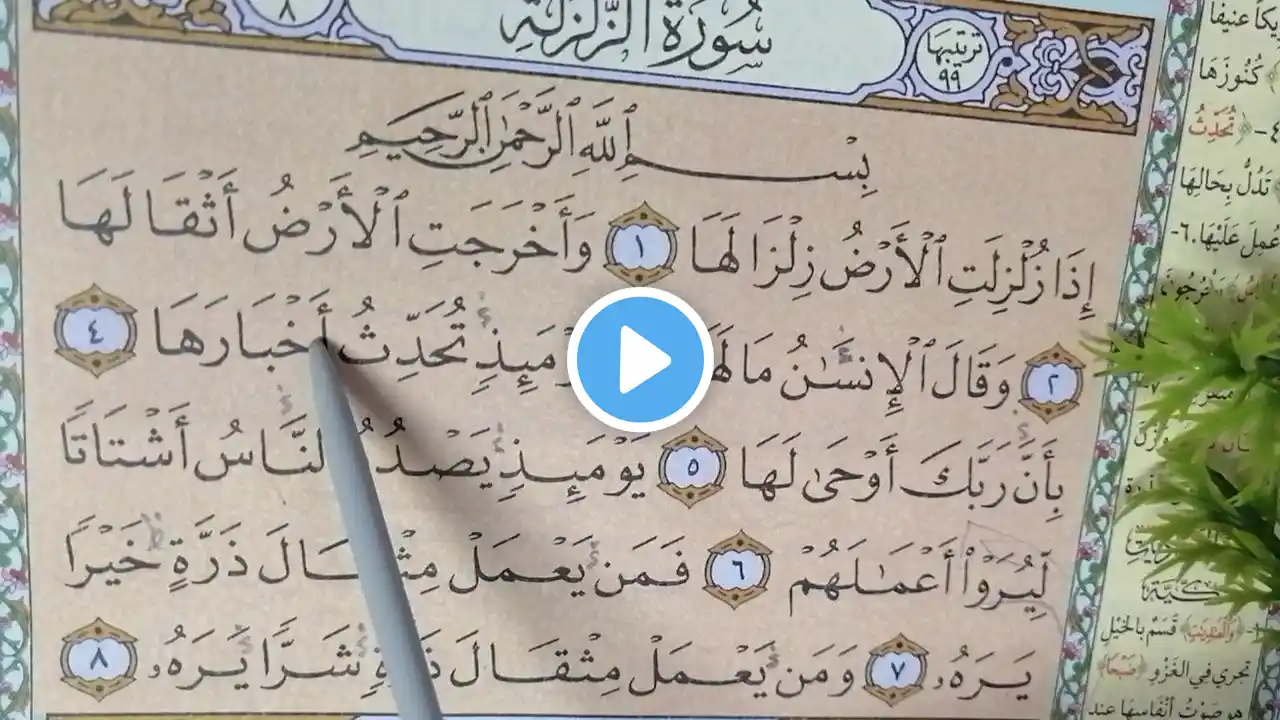 ٨
سُورَةُ الزَّلْزَلَةِ
ترتيبها
٩٩
بِسْمِ ٱللَّهِ ٱلرَّحْمَٰنِ ٱلرَّحِيمِ
إِذَا زُلْزِلَتِ ٱلْأَرْضُ زِلْزَالَهَا ١ وَأَخْرَجَتِ ٱلْأَرْضُ أَثْقَالَهَا
٢ وَقَالَ ٱلْإِنسَٰنُ مَا تُحَدِّثُ أَخْبَارَهَا ٤
بِأَنَّ رَبَّكَ أَوْحَىٰ لَهَا ٥ يَوْمَئِذٍ يَصْدُرُ ٱلنَّاسُ أَشْتَاتًا
لِّيُرَوْا۟ أَعْمَٰلَهُمْ ٦ فَمَن يَعْمَلْ مِثْقَالَ ذَرَّةٍ خَيْرًا
يَرَهُۥ ٧ وَمَن يَعْمَلْ مِثْقَالَ ذَرَّةٍ شَرًّا يَرَهُۥ ٨
عَنِيفًا
كُنُوزَهَا
٤- ﴿تُحَدِّثُ
تَدُلُّ بِحَالِهَا
عُمِلَ عَلَيْهَا. ٦-
قَسَمٌ بِالخَيْلِ
تجري في الغَزْوِ ﴿ضَبْحًا﴾
هو صَوْتُ أَنْفَاسِهَا عند